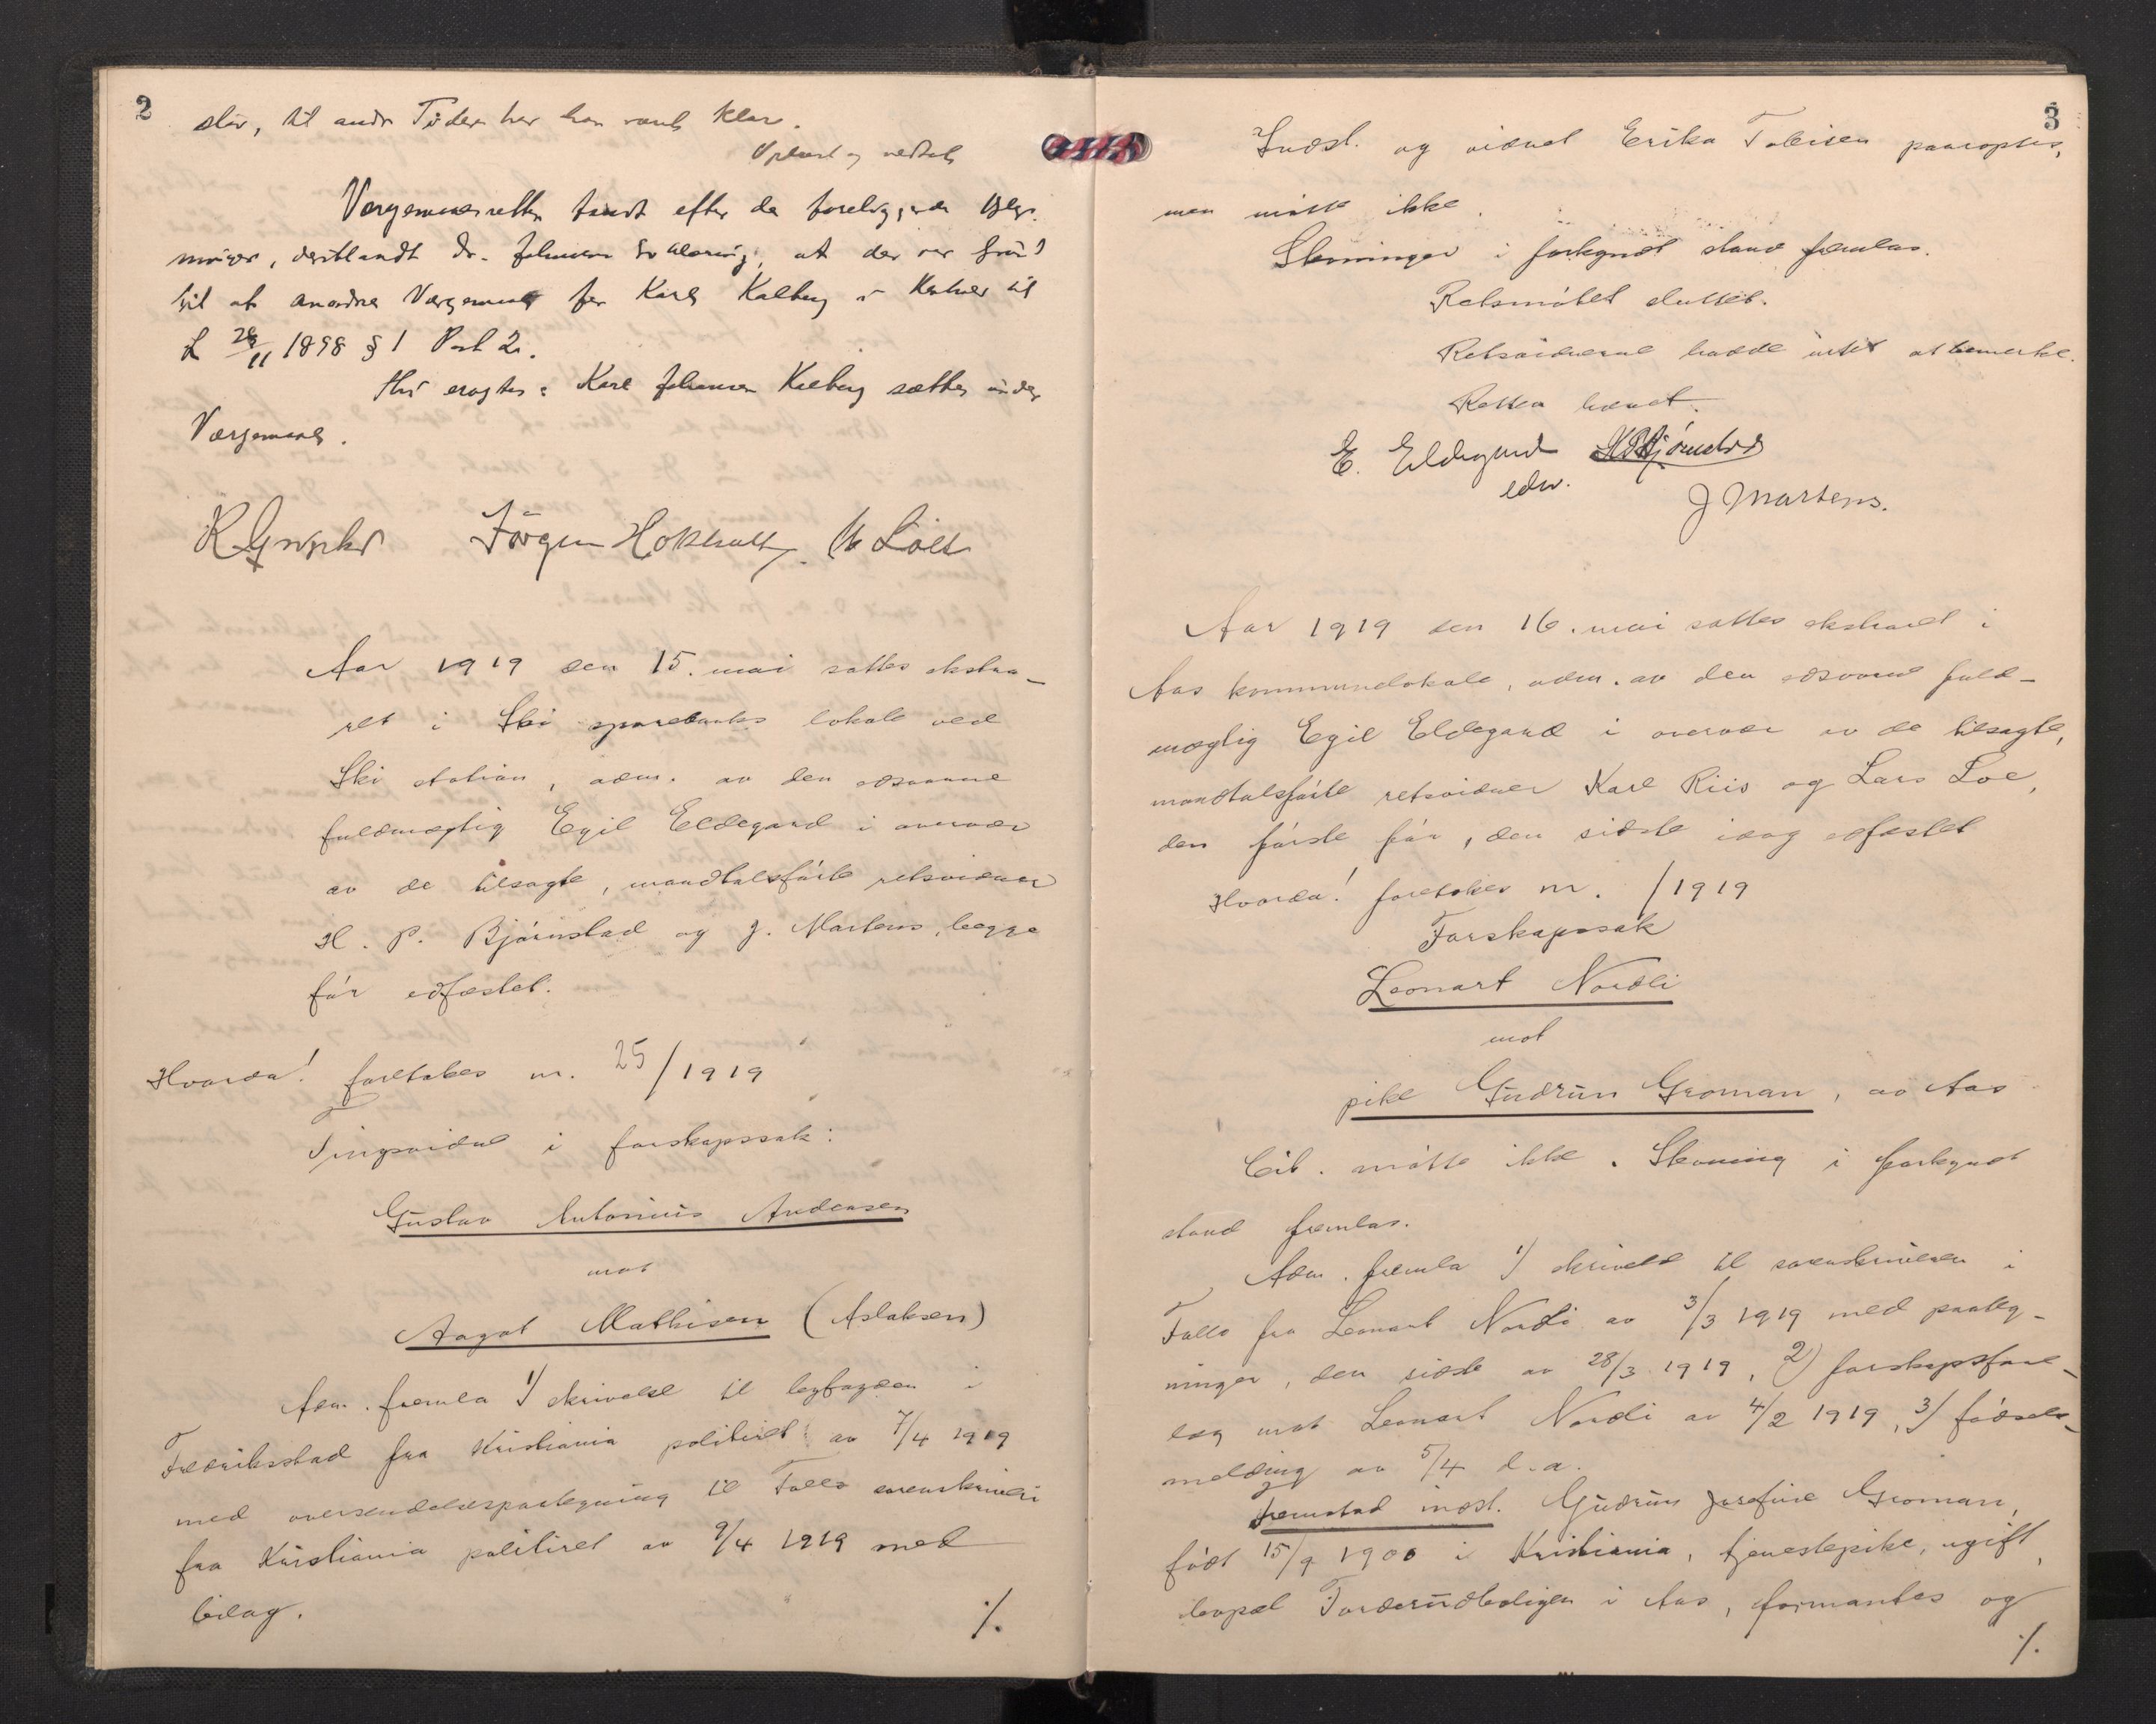 2
sløv, til andre Tider har han været klar.
Oplæst og vedtat
Værgemaalsretten fandt efter de foreliggende Oplys-
ninger, deriblandt Dr. Johnsens Erklæring, at der var Grund
til at anordne Værgemaal for Karl Kalberg i Henhold til
L 28/11 1898 § 1 Post 2.
Thi eragtes: Karl Johansen Kalberg sættes under
Værgemaal.
Jørgen
Aar 1919 den 15. mai sattes ekstra-
ret i Ski sparebanks lokale ved
Ski station, adm. av den edsvorne
fuldmægtig Egil Eldegard i overvær
av de tilsagte, mandtalsførte retsvidner
H. P. Bjørnstad og J. Martens, begge
før edfæstet.
Hvorda! foretokes nr. 25/1919
Tingsvidne i farskapssak:
Gustav Antonius Andersen
mot
Aagot Mathisen (Aslaksen)
Adm. fremla 1) skrivelse til byfogden i
Fredriksstad fra Kristiania politiret av 7/4 1919
med oversendelsespaategning til Follo sorenskriveri
fra Kristiania politiret av 9/4 1919 med
bilag.
./.
3
Indst. og vidnet Erika Tobisen paaroptes,
men møtte ikke.
Stevninger i forkyndt stand fremlas.
Retsmøtet sluttet.
Retsvidnerne hadde intet at bemerke.
Retten hævet.
E. Eldegard H P Bjørnstad
edsv.
J Martens.
Aar 1919 den 16. mai sattes ekstraret i
Aas kommunelokale, adm. av den edsvorne fuld-
mægtig Egil Eldegard i overvær av de tilsagte,
mandtalsførte retsvidner Karl Riis og Lars Loe,
den første før, den sidste idag edfæstet
Hvorda! foretokes nr. /1919
Farskapssak
Leonart Nordli
mot
pike Gudrun Groman, av Aas
Cit. møtte ikke. Stevning i forkyndt
stand fremlas.
Adm. fremla 1) skrivelse til sorenskriveren i
Follo fra Leonart Nordli av 3/3 1919 med paateg-
ninger, den sidste av 28/3 1919, 2) farskapsfore-
læg mot Leonart Nordli av 4/2 1919, 3) fødsels-
melding av 5/4 d.a.
Fremstod indst. Gudrun Josefine Groman,
født 15/9 1900 i Kristiania, tjenestepike, ugift,
bopæl Forderudboligen i Aas, formantes og
./.